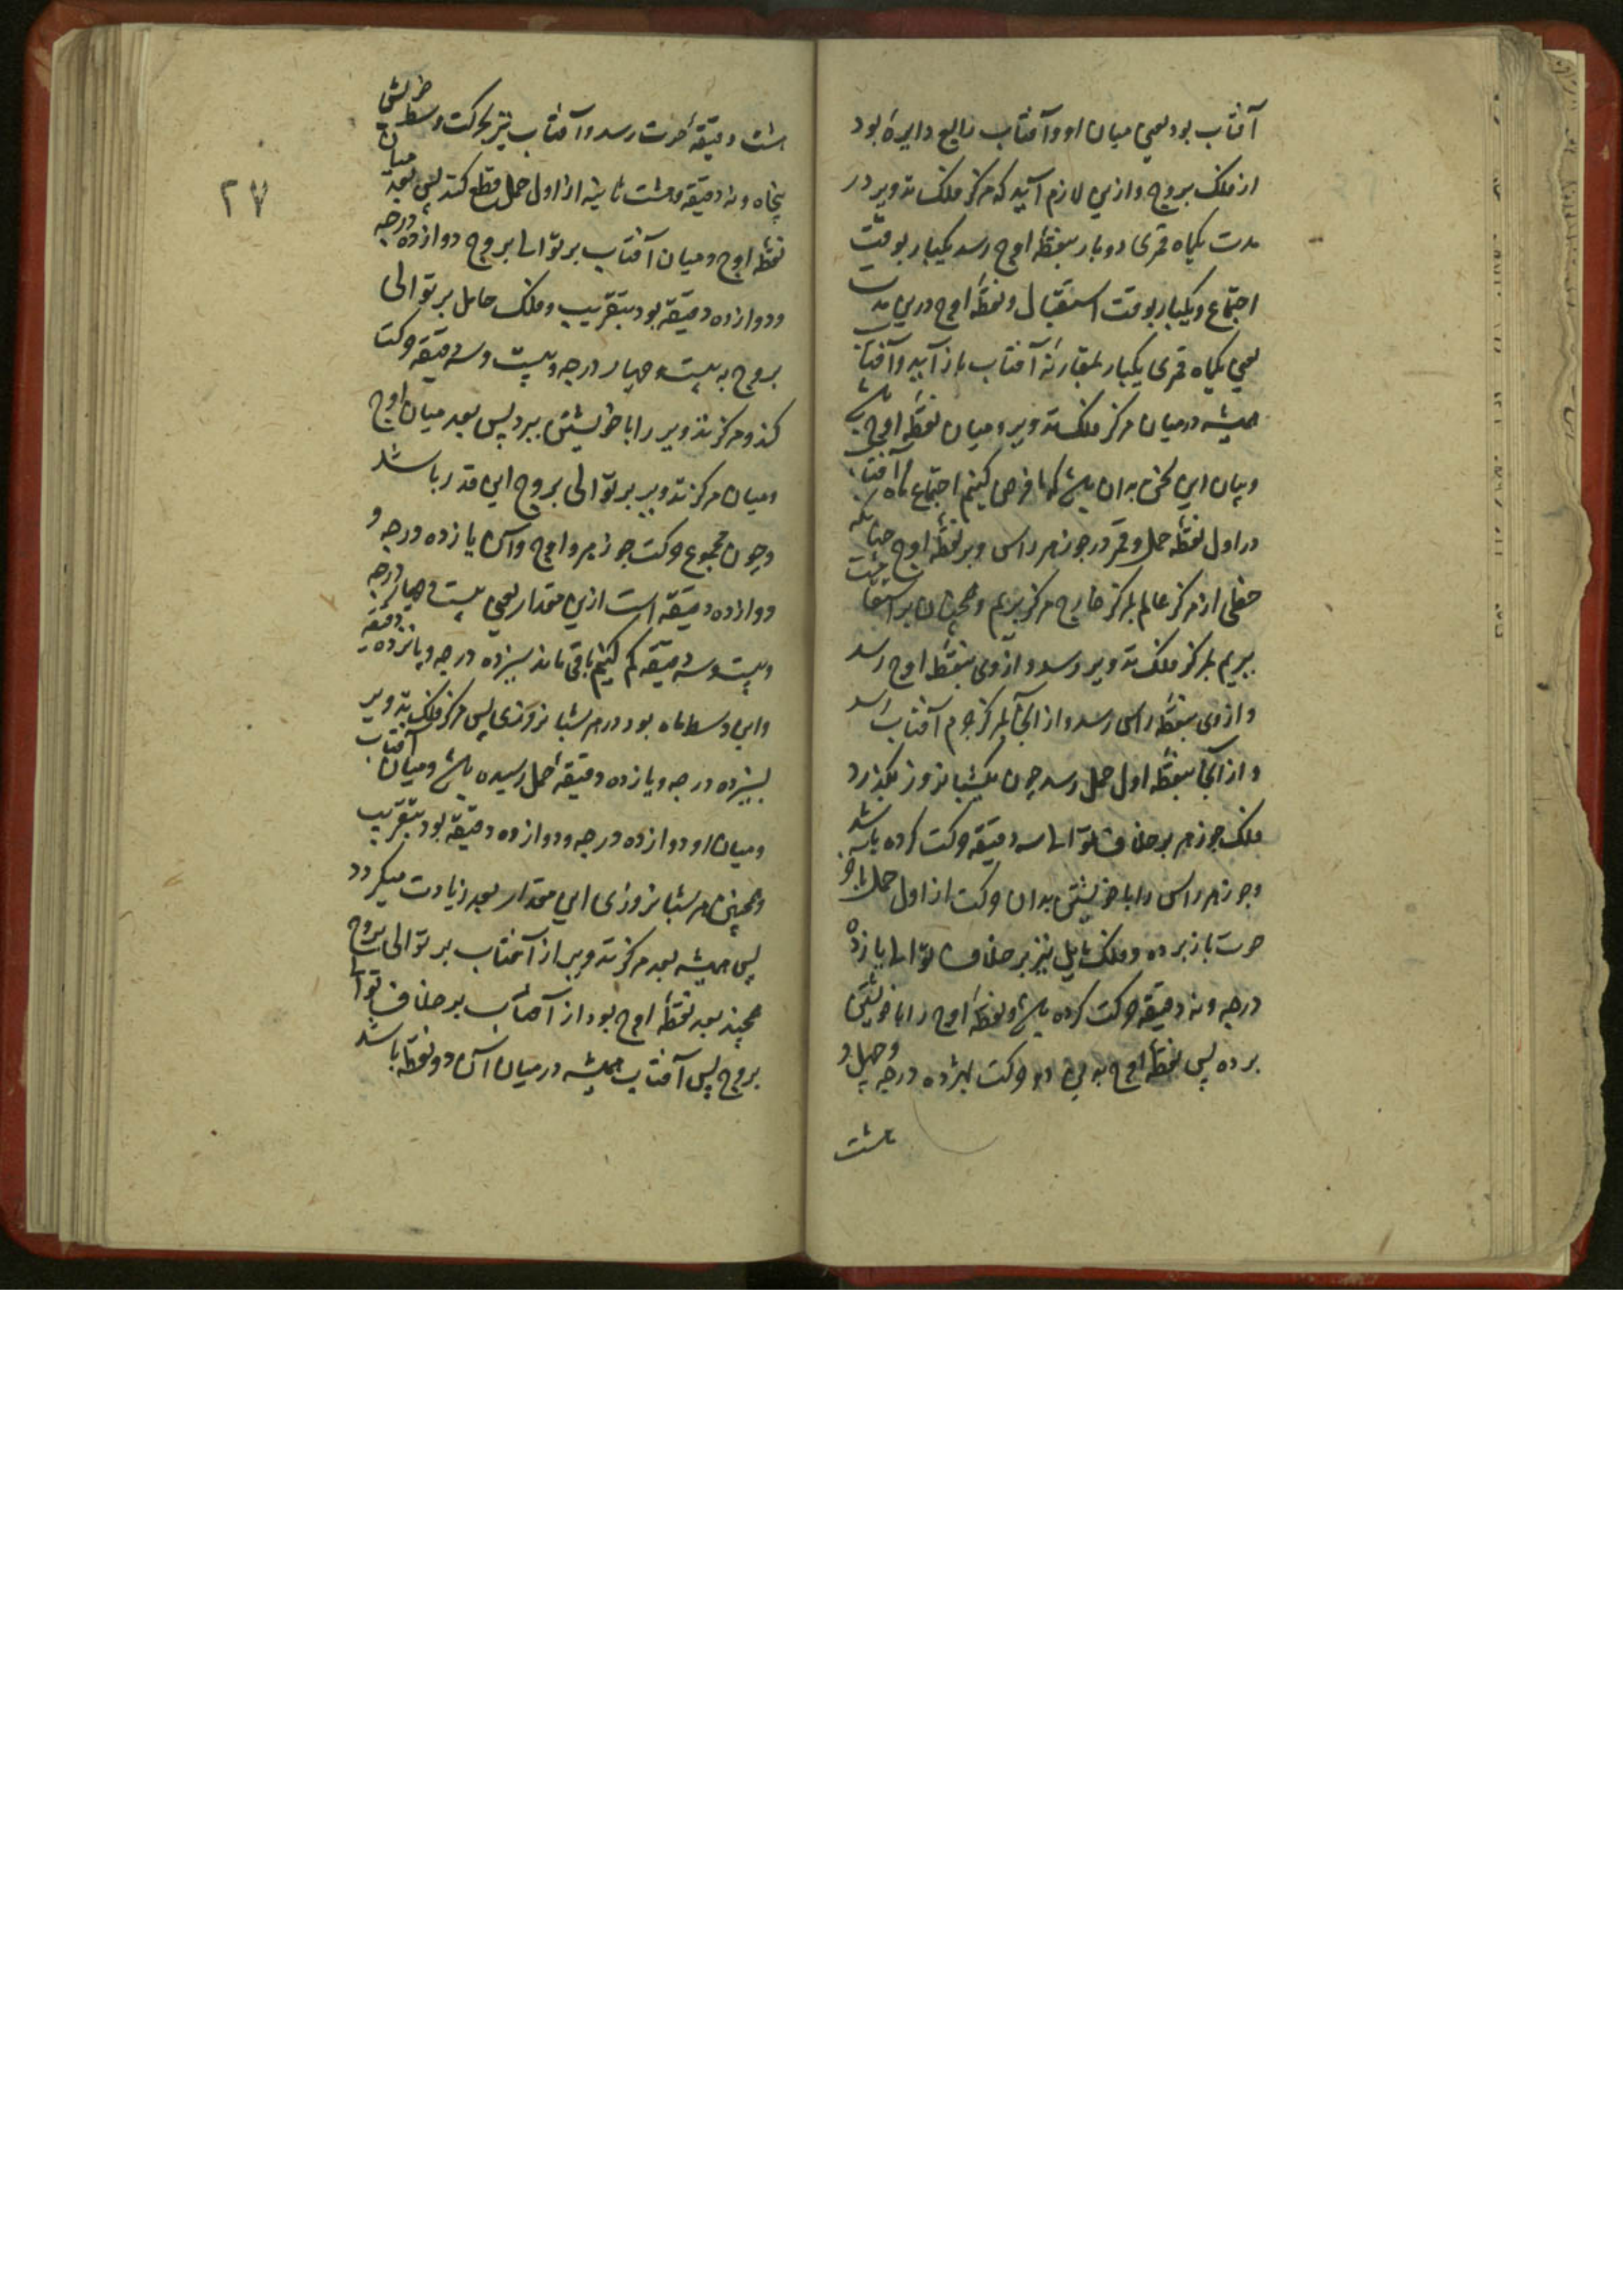 آفتاب بود یعنی میان او و آفتاب ربع دایره بود
از فلک بروج و ازین لازم آید که مرکز فلک تدویر در
مدت یکماه قمری دو بار بنقطهٔ اوج رسد یکبار بوقت
اجتماع و یکبار بوقت استقبال و نقطهٔ اوج درین مدت
یعنی یکماه قمری یکبار بمقارنهٔ آفتاب باز آید و آفتاب
همیشه در میان مرکز فلک تدویر و میان نقطهٔ اوج باشد
و بیان این سخن بدان باشد که ما فرض کنیم اجتماع ماه و آفتاب
در اول نقطهٔ حمل و قمر در جوزهر راس و بر نقطهٔ اوج چنانکه
خطی از مرکز عالم بمرکز خارج مرکز بریم و همچنان بر استقامت
ببریم بمرکز فلک تدویر رسد و از وی بنقطهٔ اوج رسد
و از وی بنقطهٔ راس رسد و از آنجا بمرکز جرم آفتاب رسد
و از آنجا بنقطهٔ اول حمل رسد چون یکشبانروز بگذرد
فلک جوزهر بر خلاف توالی سه دقیقه حرکت کرده باشد
و جوزهر راس را با خویشتن بدان حرکت از اول حمل با آخر
حوت باز برده و فلک مایل نیز بر خلاف توالی یازده
درجه و نه دقیقه حرکت کرده باشد و نقطهٔ اوج را با خویشتن
برده پس نقطهٔ اوج بدین دو حرکت بهژده درجه و چهل و
هشت
۲۷
هشت دقیقهٔ حوت رسد و آفتاب نیز بحرکت وسط خویش
پنجاه و نه دقیقه و هشت ثانیه از اول حمل قطع کند پس بعد میان
نقطهٔ اوج و میان آفتاب بر توالی بروج دوازده درجه
و دوازده دقیقه بود بتقریب و فلک حامل بر توالی
بروج به بیست و چهار درجه و بیست و سه دقیقه حرکت
کند و مرکز تدویر را با خویشتن ببرد پس بعد میان اوج
و میان مرکز تدویر بر توالی بروج این قدر باشد
و چون مجموع حرکت جوزهر و اوج و آن یازده درجه و
دوازده دقیقه است ازین مقدار یعنی بیست و چهار درجه
و بیست و سه دقیقه کم کنیم باقی ماند سیزده درجه و یازده دقیقه
و این وسط ماه بود در هر شبانروزی پس مرکز فلک تدویر
بسیزده درجه و یازده دقیقهٔ حمل رسیده باشد و میان آفتاب
و میان او دوازده درجه و دوازده دقیقه بود بتقریب
و همچنین هر شبانروزی این مقدار بعد زیادت میگردد
پس همیشه بعد مرکز تدویر از آفتاب بر توالی بروج
همچند بعد نقطهٔ اوج بود از آفتاب بر خلاف توالی
بروج پس آفتاب همیشه در میان آن دو نقطه باشد